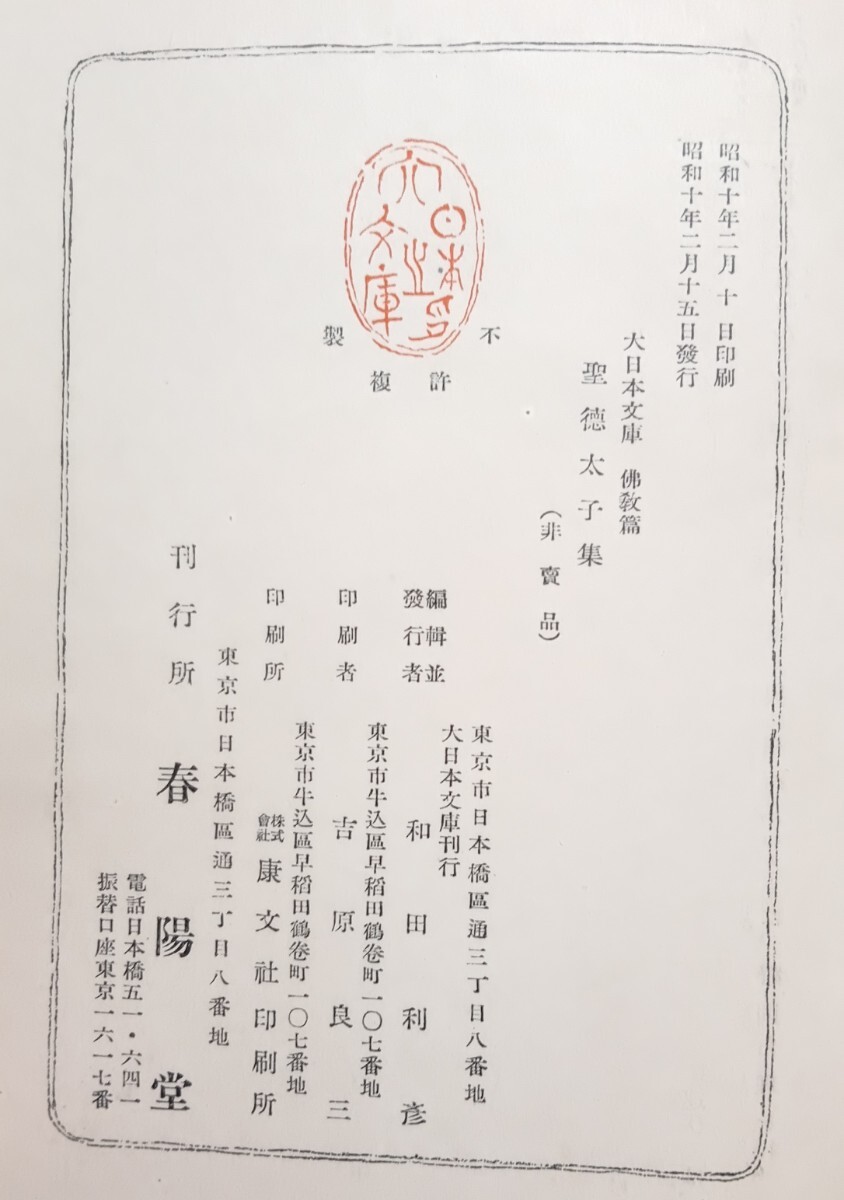 昭和十年二月十日印刷
昭和十年二月十五日發行
大日本文庫 佛教篇
聖德太子集
（非賣品）
不許複製
大日本文庫之印
東京市日本橋區通三丁目八番地
大日本文庫刊行
編輯並發行者 和田利彥
東京市牛込區早稻田鶴卷町一〇七番地
印刷者 吉原良三
東京市牛込區早稻田鶴卷町一〇七番地
印刷所 株式會社 康文社印刷所
東京市日本橋區通三丁目八番地
刊行所 春陽堂
電話日本橋五一・六四一
振替口座東京一六一七番